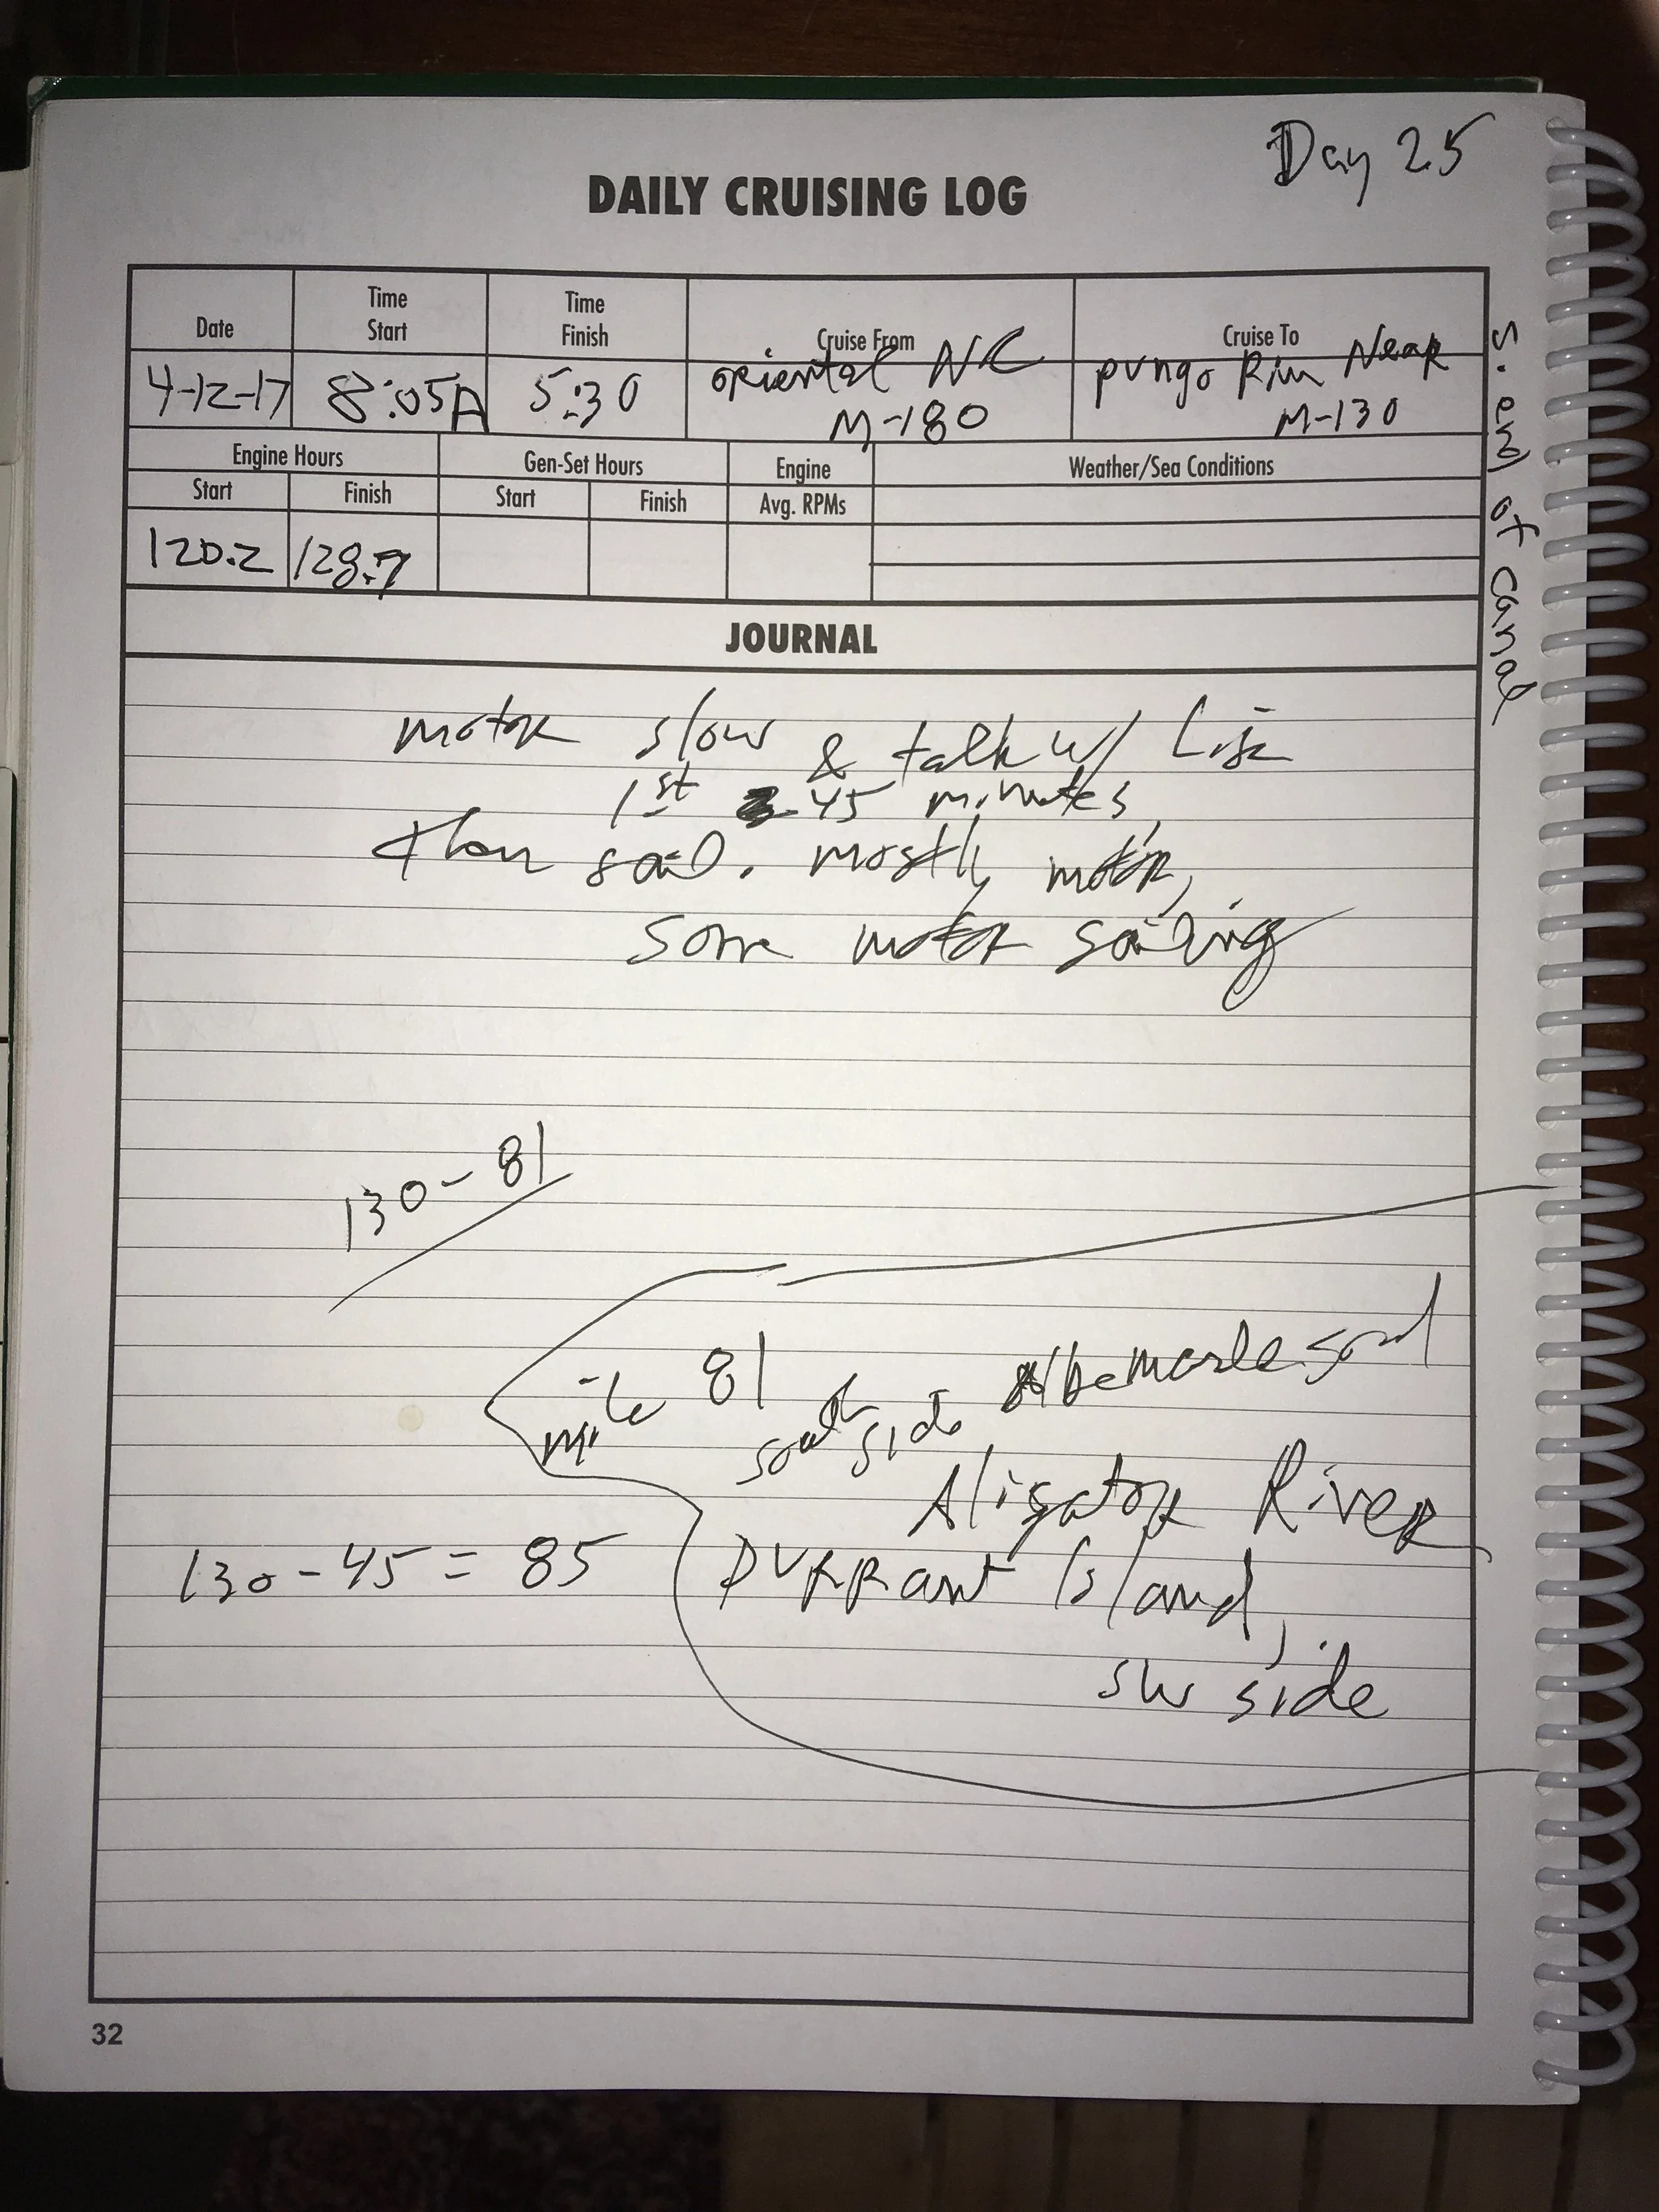 Day 25
DAILY CRUISING LOG
Date
Time Start
Time Finish
Cruise From
Cruise To
4-12-17
8:05A
5:30
oriental NC
M-180
pungo Near
M-130
S. end of canal
Engine Hours
Gen-Set Hours
Engine
Weather/Sea Conditions
Start
Finish
Start
Finish
Avg. RPMs
120.2
128.7
JOURNAL
motor slow & talk w/ Lisa
1st 45 minutes,
then sail. mostly motor,
some motor sailing
130-81
mile 81
south side Albemarle
Aligator River
130-45 = 85
Durrant Island,
SW side
32